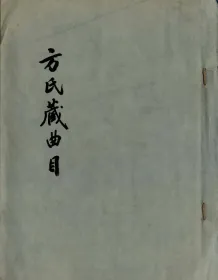 方氏藏曲目